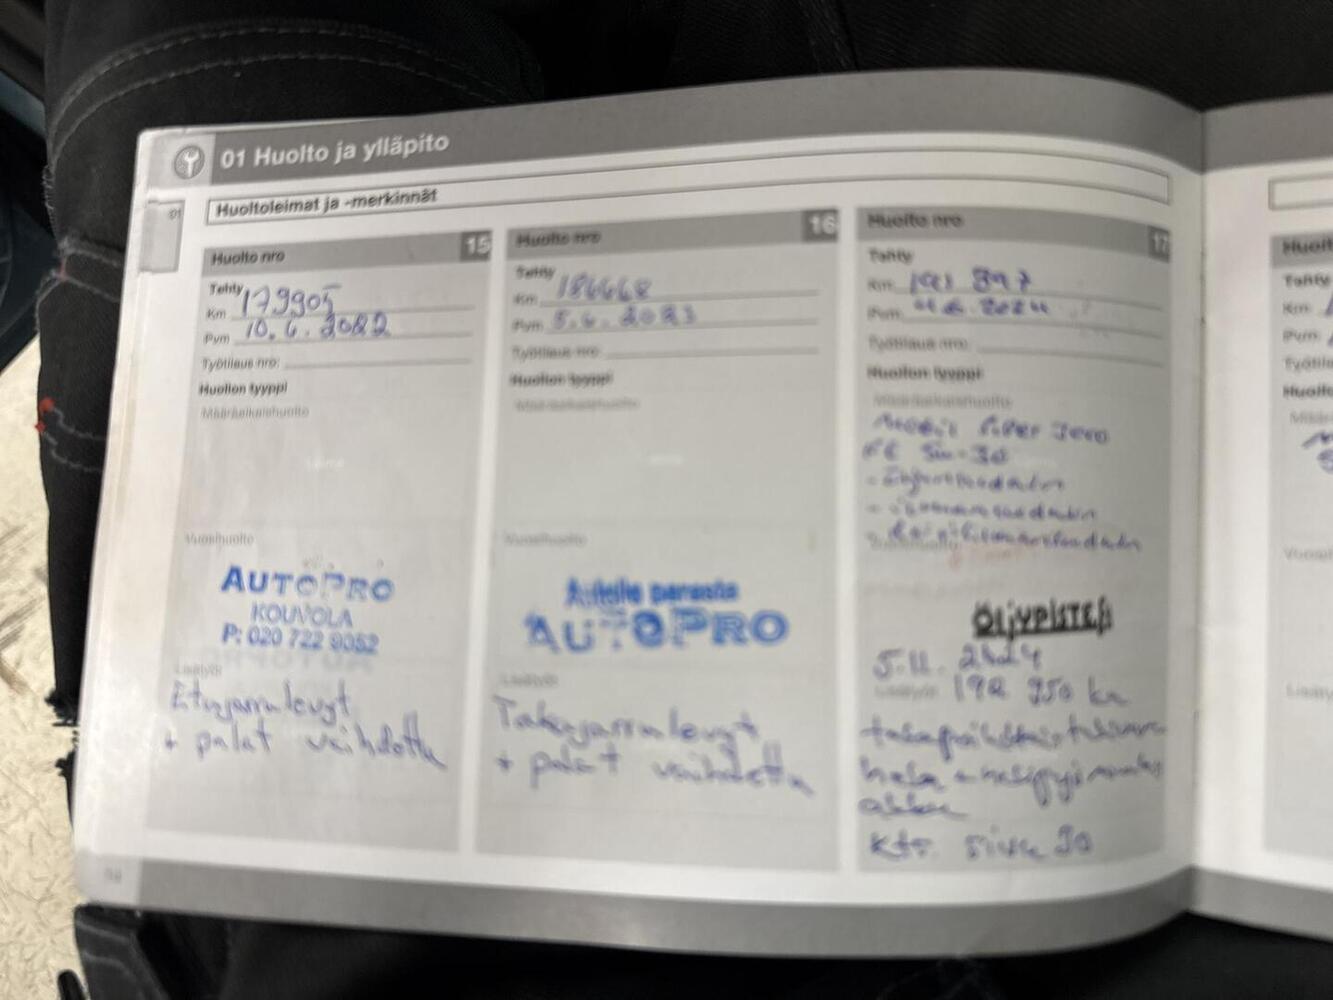 01 Huolto ja ylläpito
01
Huoltoleimat ja -merkinnät
Huolto nro 15
Tehty
Km 179905
Pvm 10.6.2022
Työtilaus nro:
Huollon tyyppi
Määräaikaishuolto
Leima
Vuosihuolto
AUTOPRO
KOUVOLA
P: 020 722 9052
Lisätyöt
Etujarrulevyt
+ palat vaihdettu
Huolto nro 16
Tehty
Km 186668
Pvm 5.6.2023
Työtilaus nro:
Huollon tyyppi
Määräaikaishuolto
Vuosihuolto
Autoille parasta
AUTOPRO
Lisätyöt
Takajarrulevyt
+ palat vaihdettu
Huolto nro 17
Tehty
Km 191 897
Pvm 2024
Työtilaus nro:
Huollon tyyppi
Määräaikaishuolto
Mobil Super 3000
FE 5w-30
- öljynsuodatin
- ilmansuodatin
- raitisilmansuodatin
Vuosihuolto
ÖLJYPISTE
5.11.2024
Lisätyöt 192 950 km
akku
kts. sivu 90
Tehty
Km
Pvm